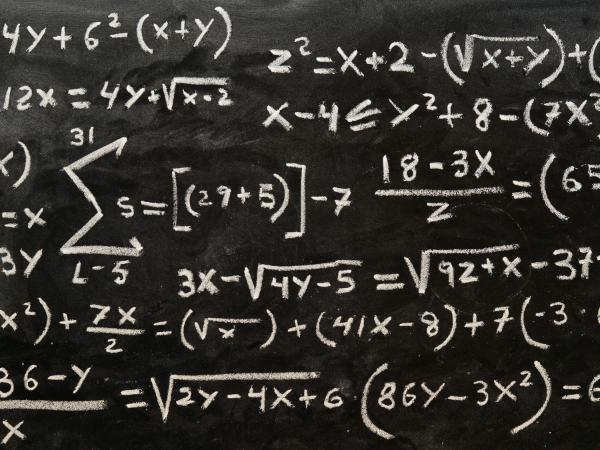 4y + 6² - (x+y)
z² = x + 2 - (√x+y) + (
12x = 4y + √x-2
x - 4 ≤ y² + 8 - (7x²
x)
31
Σ s = [(29+5)] - 7
L-5
18 - 3x / z = (65
= x
3y
3x - √4y-5 = √92+x - 37
x²) + 7x / 2 = (√x) + (41x - 8) + 7(-3
36 - y / x = √2y - 4x + 6 (86y - 3x²) = 6